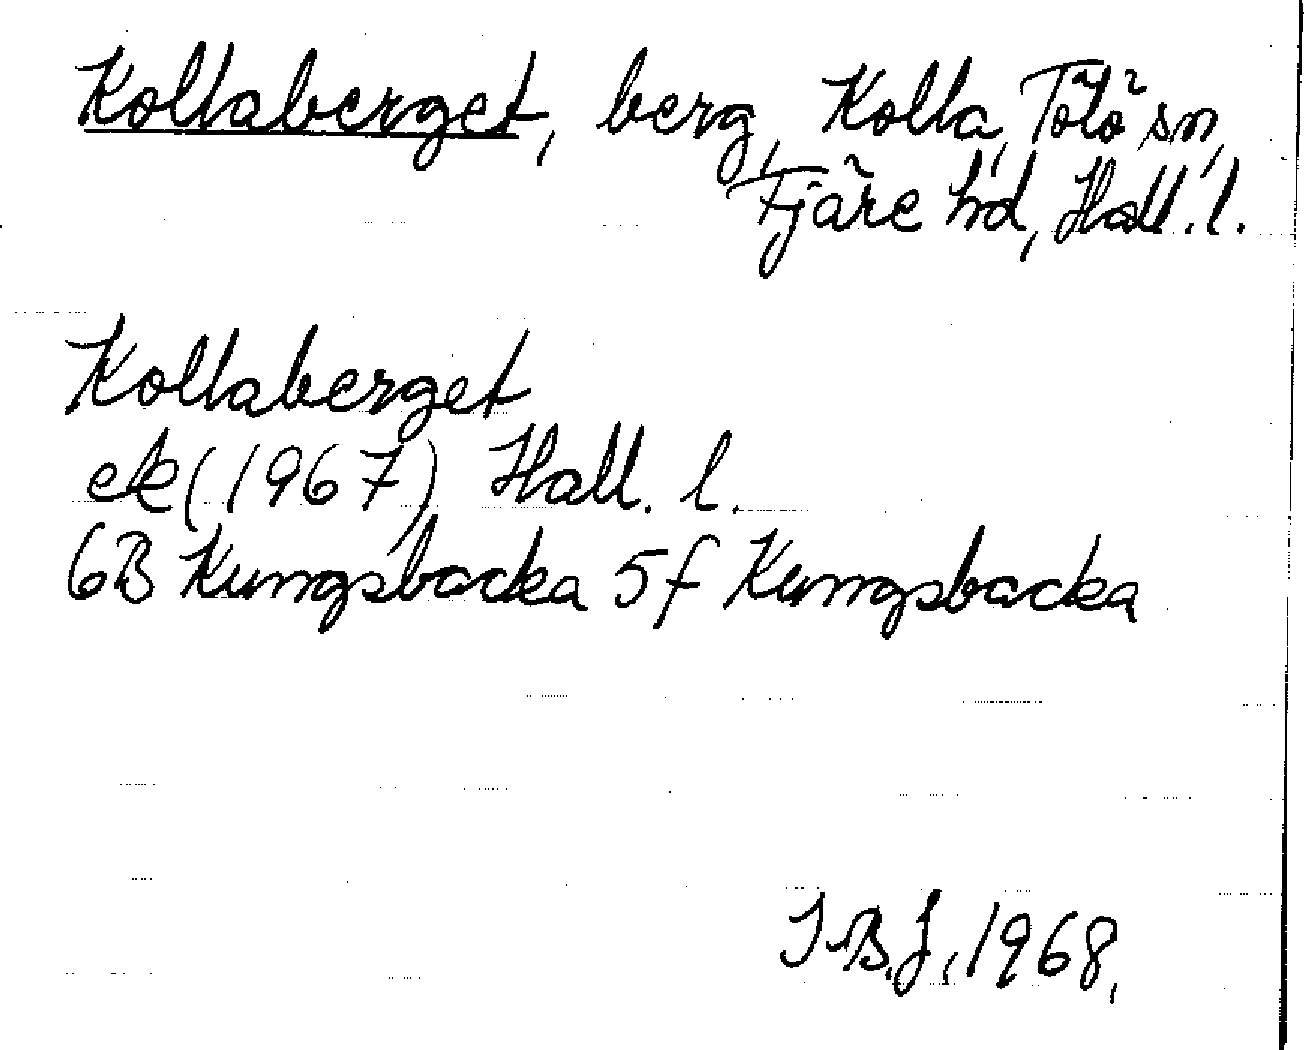 Kollaberget, berg, Kolla, Tölö sn,
Fjäre hd, Hall. l.
Kollaberget
ek (1967) Hall. l.
6B Kungsbacka 5f Kungsbacka
I.B.J, 1968,